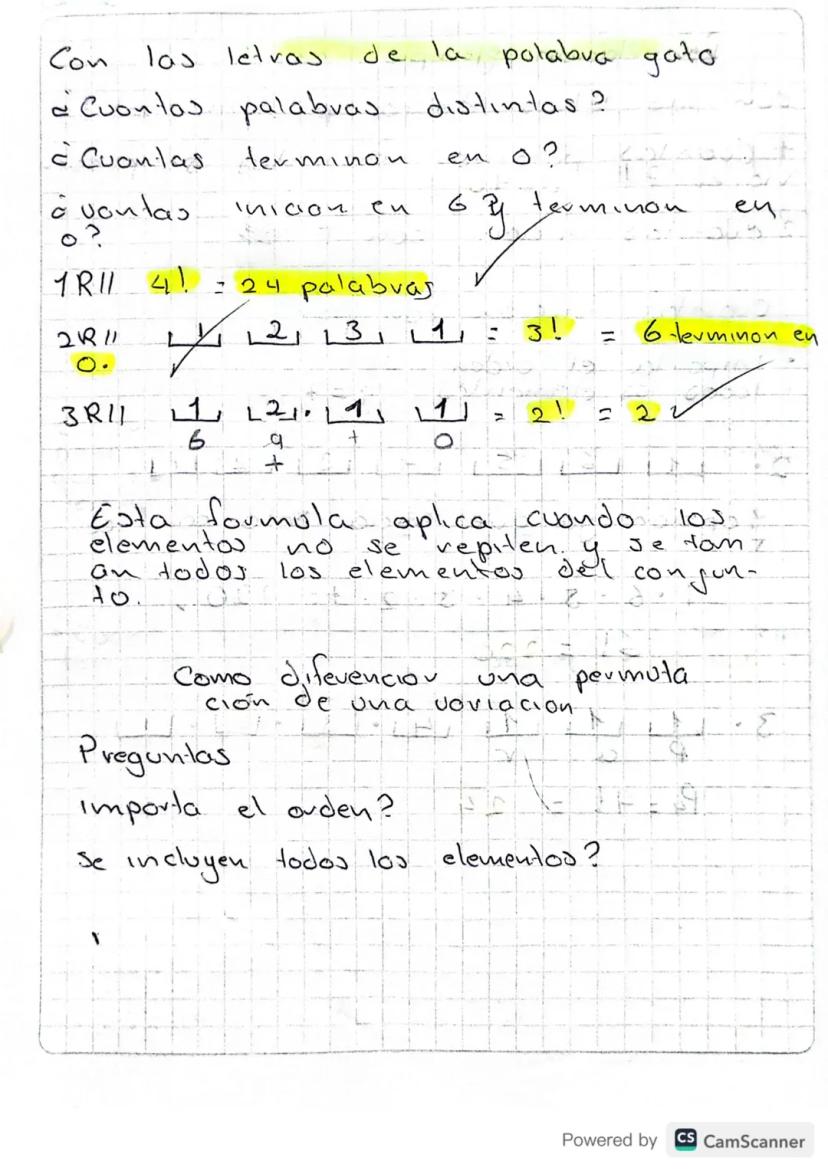 Con las letras de la palabra gato
¿Cuantas palabras distintas?
¿Cuantas terminan en o?
¿uantas inician en G y terminan en
o?
1R// 4! = 24 palabras
2R// 1 2 3 1 = 3! = 6 terminan en
O.
3R// 1 2 . 1 1 = 2! = 2
G a t O
t
Esta formula aplica cuando los
elementos no se repiten y se tom
an todos los elementos del conjun-
to.
Como diferenciar una permuta
ción de una variacion
Preguntas
importa el orden?
se incluyen todos los elementos?
Powered by CS CamScanner